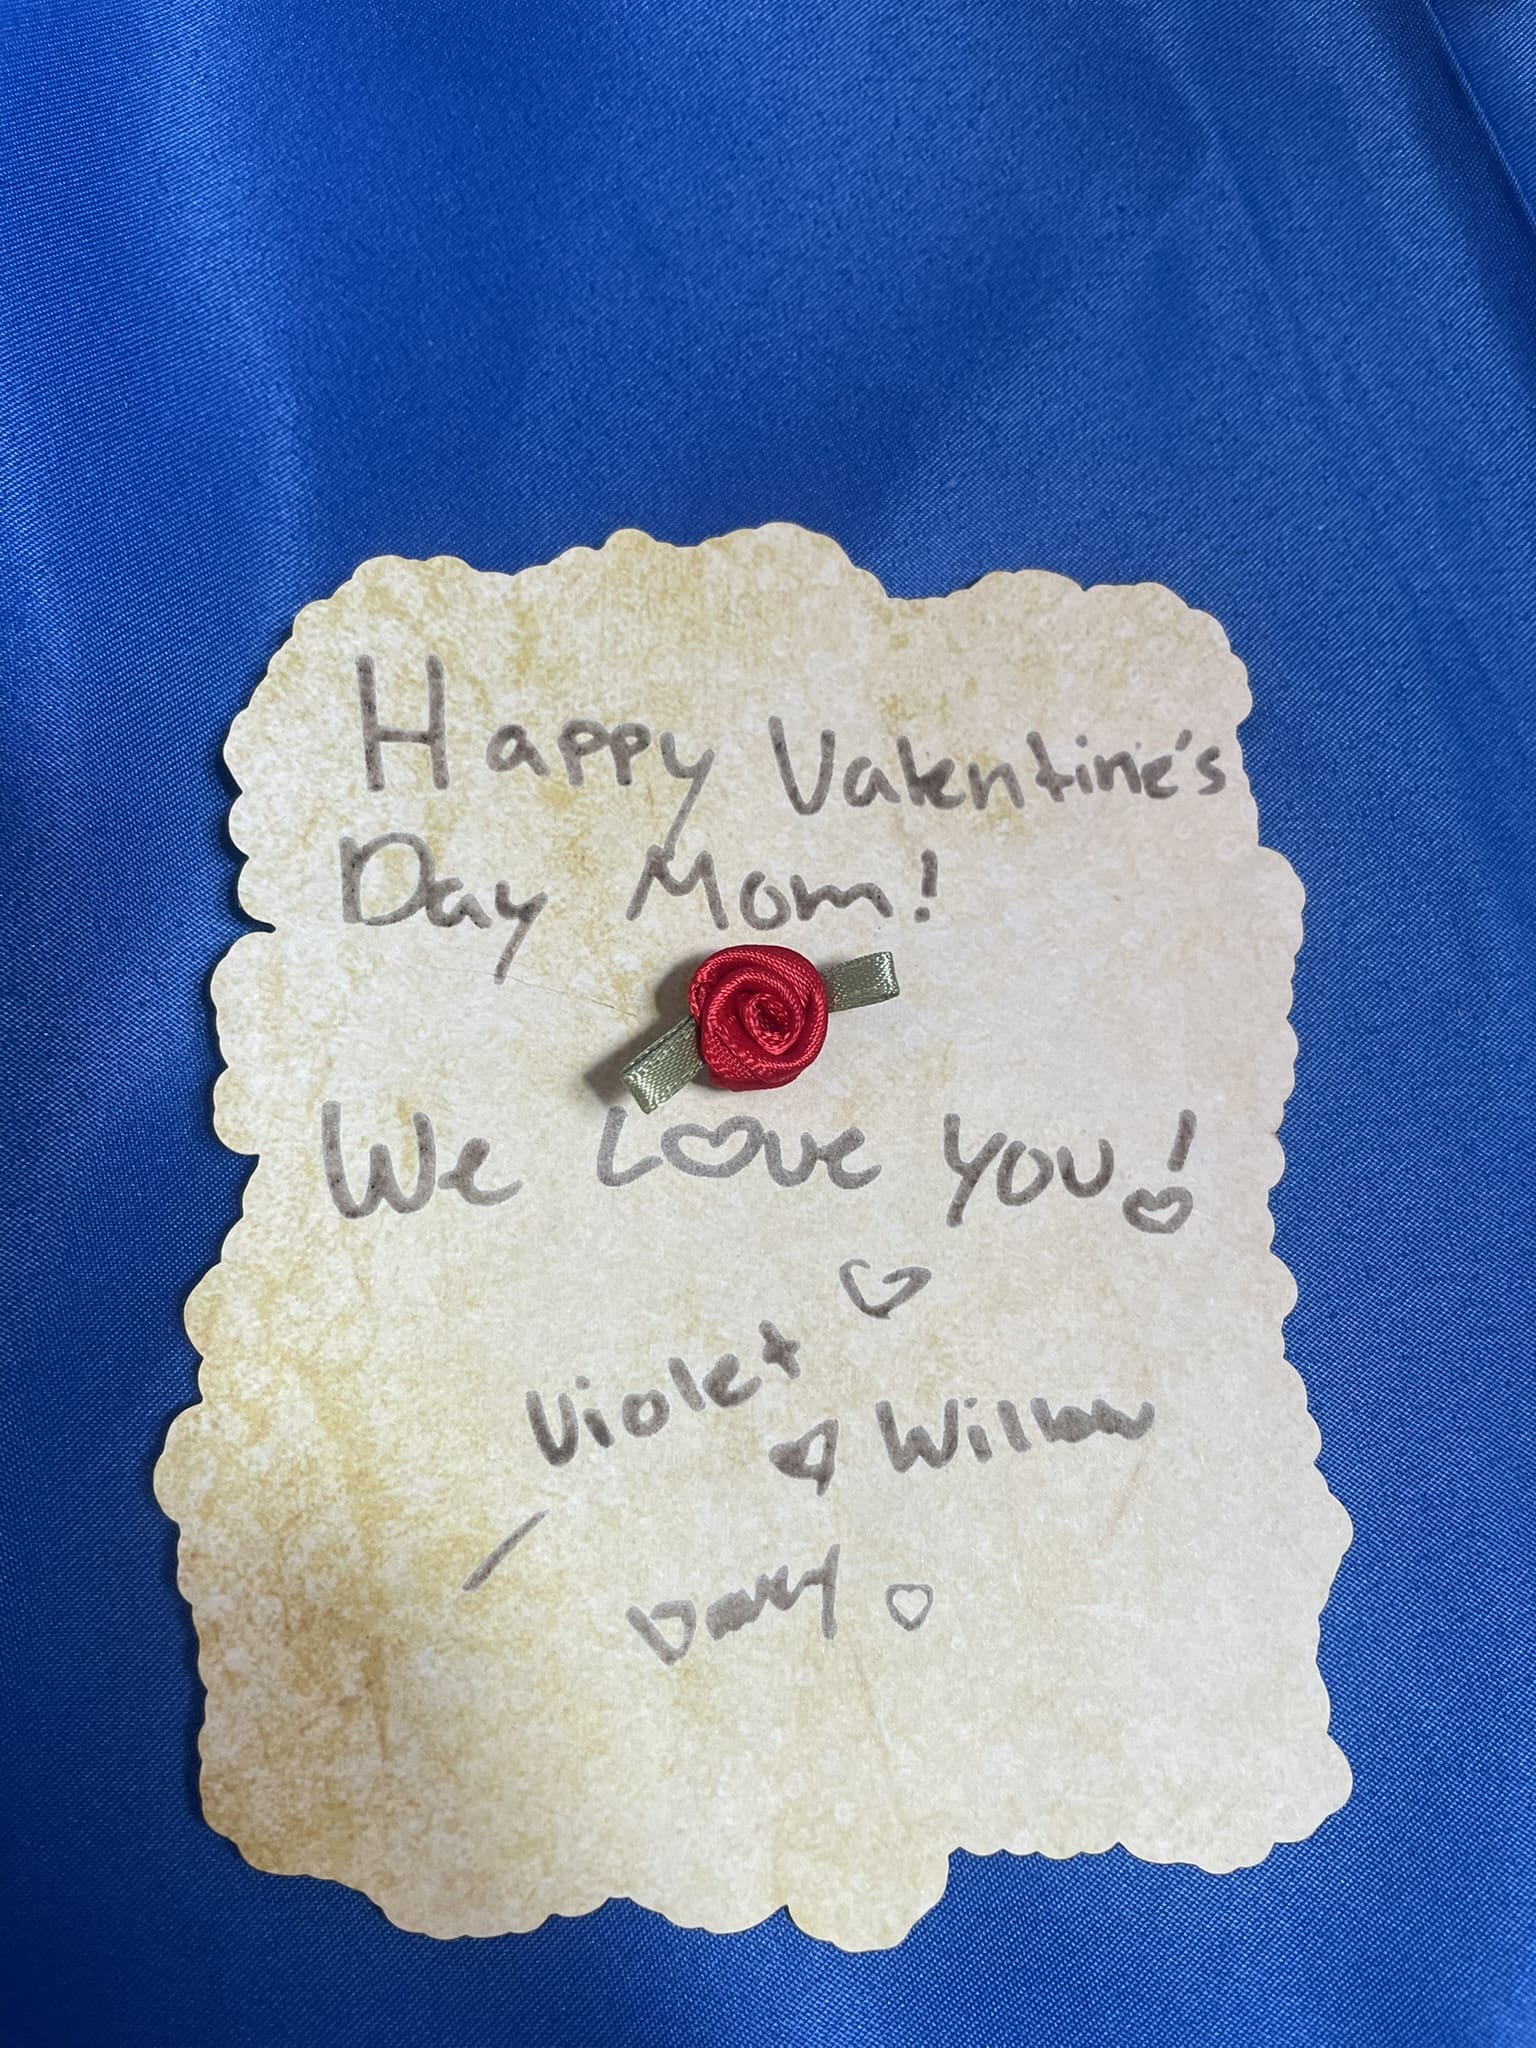 Happy Valentine's
Day Mom!
We Love you!
Violet
Willow
Davey